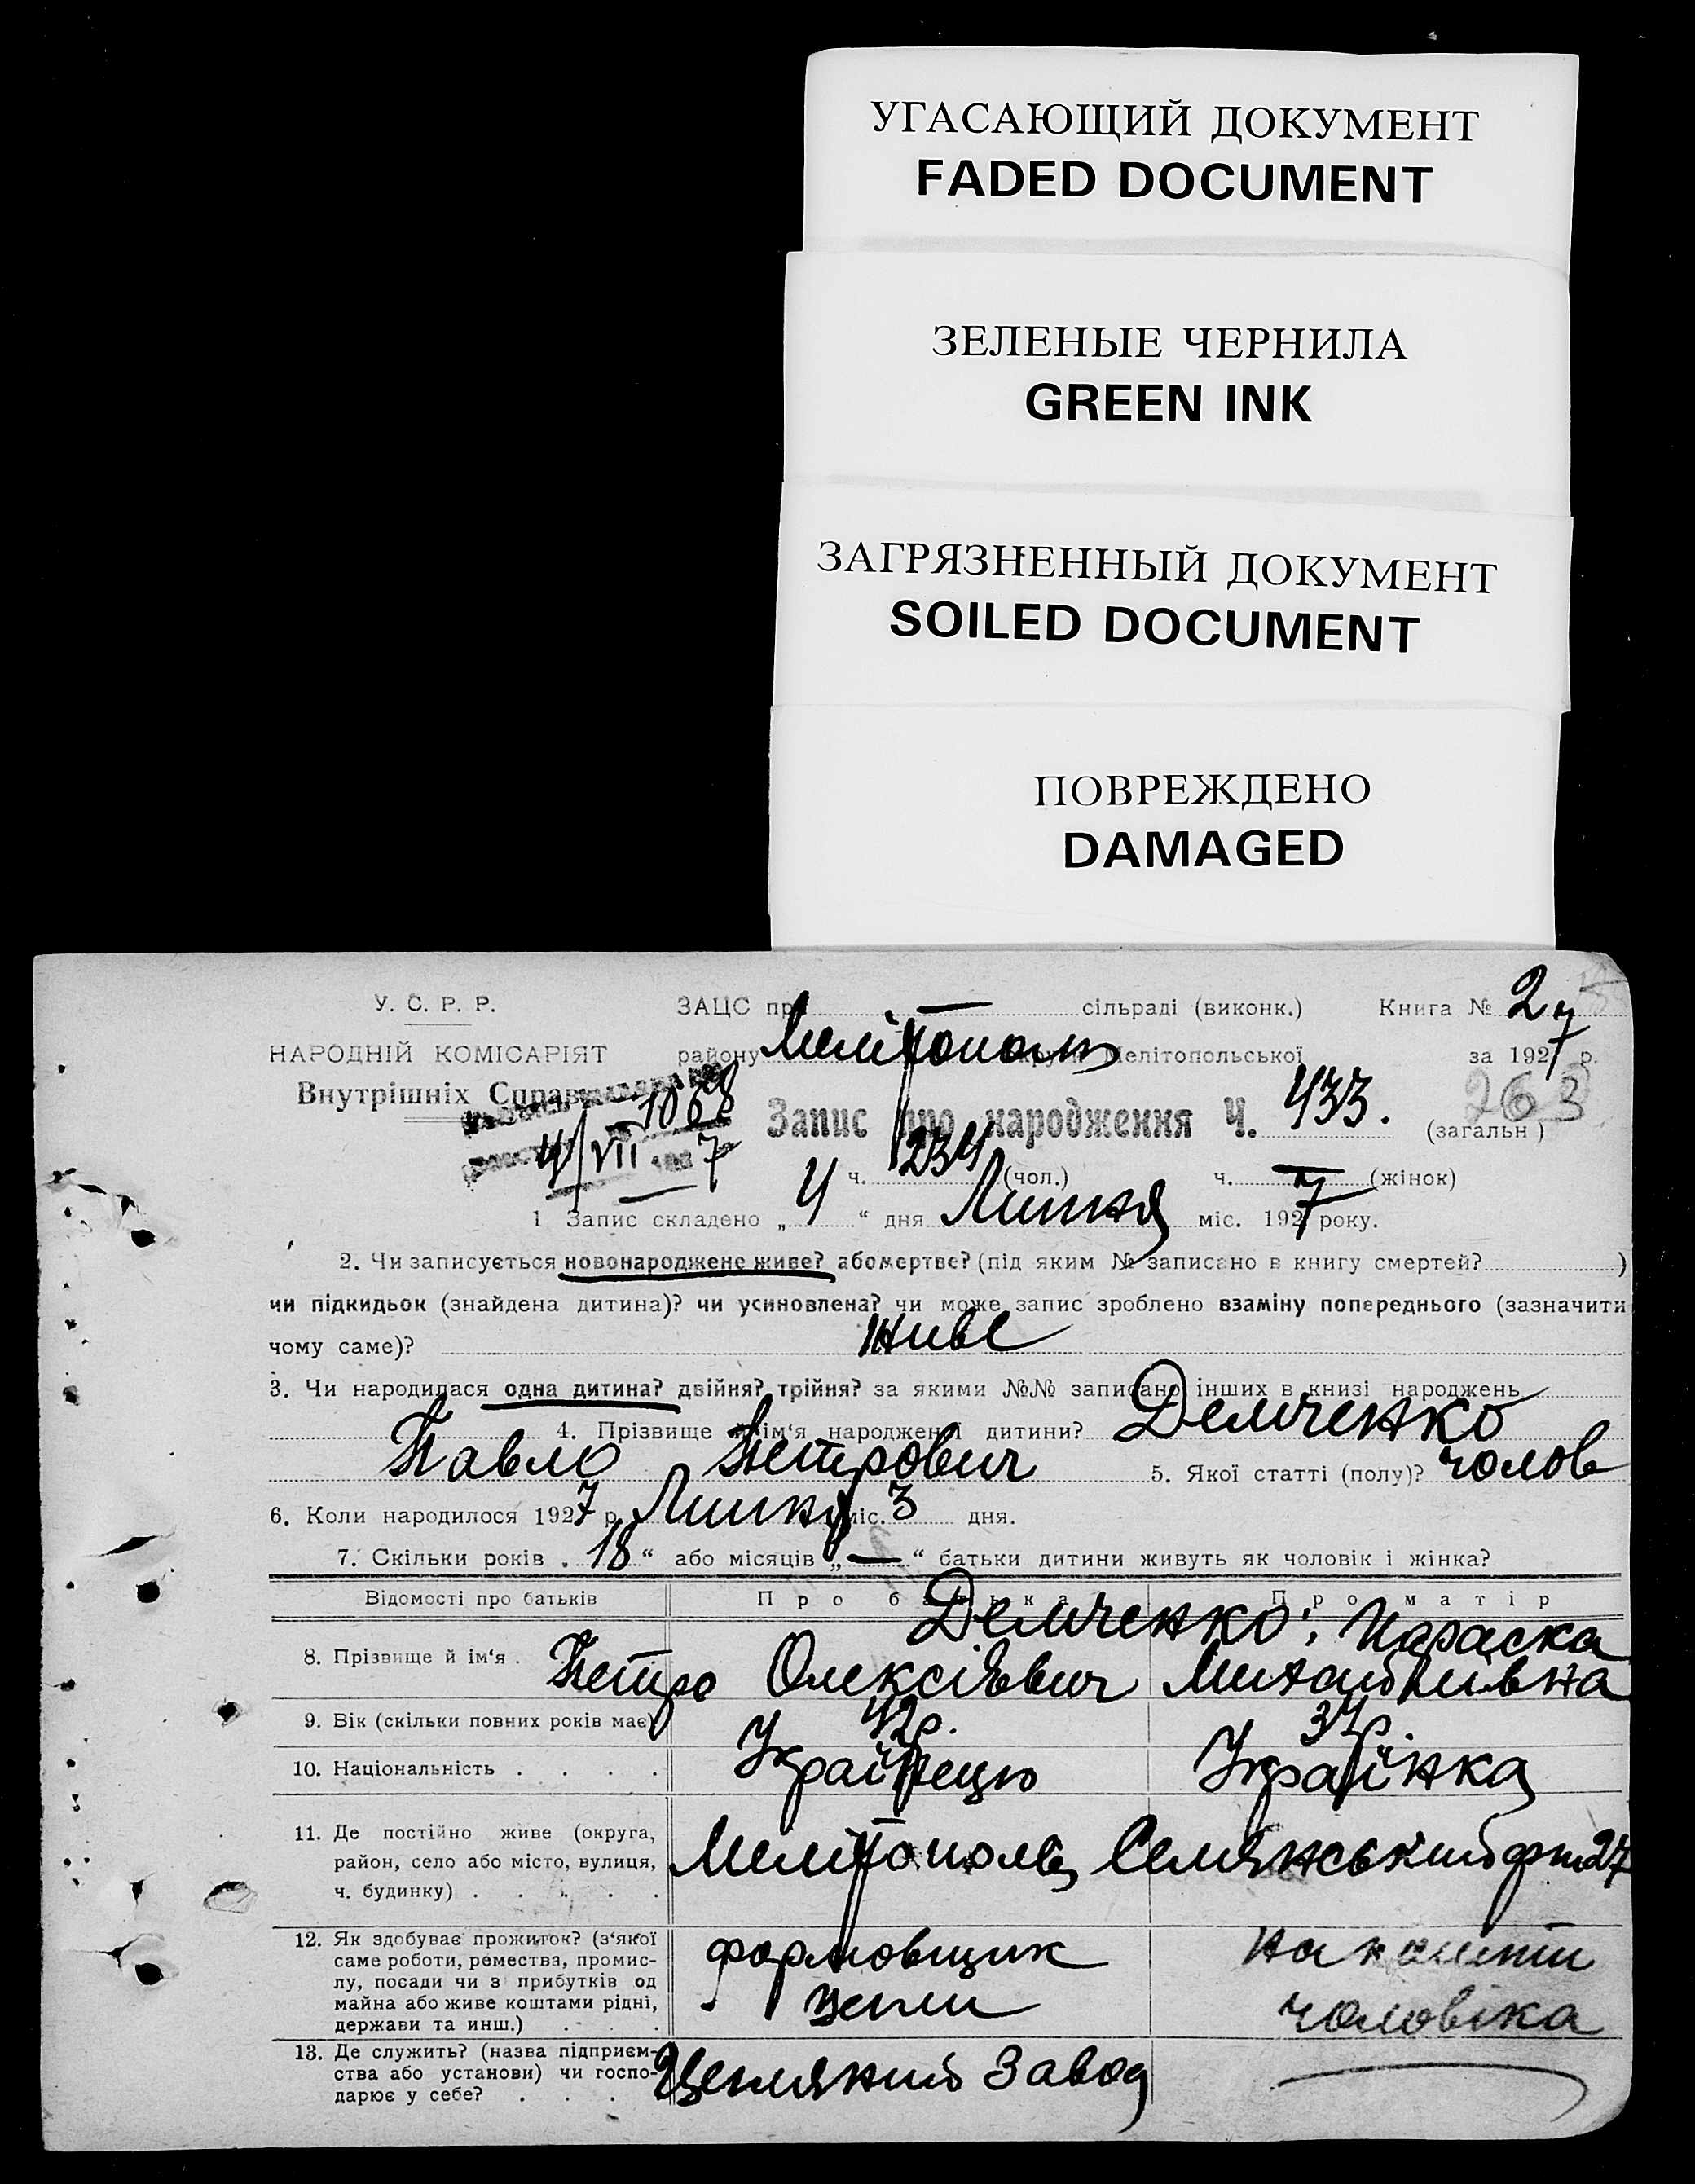 УГАСАЮЩИЙ ДОКУМЕНТ
FADED DOCUMENT
ЗЕЛЕНЫЕ ЧЕРНИЛА
GREEN INK
ЗАГРЯЗНЕННЫЙ ДОКУМЕНТ
SOILED DOCUMENT
ПОВРЕЖДЕНО
DAMAGED
У. С. Р. Р.
НАРОДНІЙ КОМІСАРІЯТ
Внутрішніх Справ
1068
4/VII 7
ЗАЦС при — сільраді (виконк.) Книга № 2
району Мелітополь округи Мелітопольської за 1927 р.
Запис про народження Ч. 433. (загальн) 263
ч. 234 (чол.) ч. — (жінок)
1 Запис складено „4“ дня Липня міс. 1927 року.
2. Чи записується новонароджене живе? або мертве? (під яким № записано в книгу смертей? )
чи підкидьок (знайдена дитина)? чи усиновлена? чи може запис зроблено взаміну попереднього (зазначити
чому саме)? живе
3. Чи народилася одна дитина? двійня? трійня? за якими №№ записано інших в книзі народжень
4. Прізвище й ім'я народженої дитини? Демченко
Павло Петрович 5. Якої статті (полу)? чолов
6. Коли народилося 1927 р. Липня міс. 3 дня.
7. Скільки років „18“ або місяців „—“ батьки дитини живуть як чоловік і жінка?
Відомості про батьків Про батька Про матір
Демченко; Параска
8. Прізвище й ім'я . Петро Олексіївич Михайлівна
9. Вік (скільки повних років має) 42р. 37р.
10. Національність . . . . Украйнець Украінка
11. Де постійно живе (округа,
район, село або місто, вулиця,
ч. будинку) . . . . .
Мелітополь 27
12. Як здобуває прожиток? (з'якої
саме роботи, ремества, промис-
лу, посади чи з прибутків од
майна або живе коштами рідні,
держави та инш.) . . .
формовщик
на кошти
чоловіка
13. Де служить? (назва підприєм-
ства або установи) чи госпо-
дарює у себе? . . . .
Завод